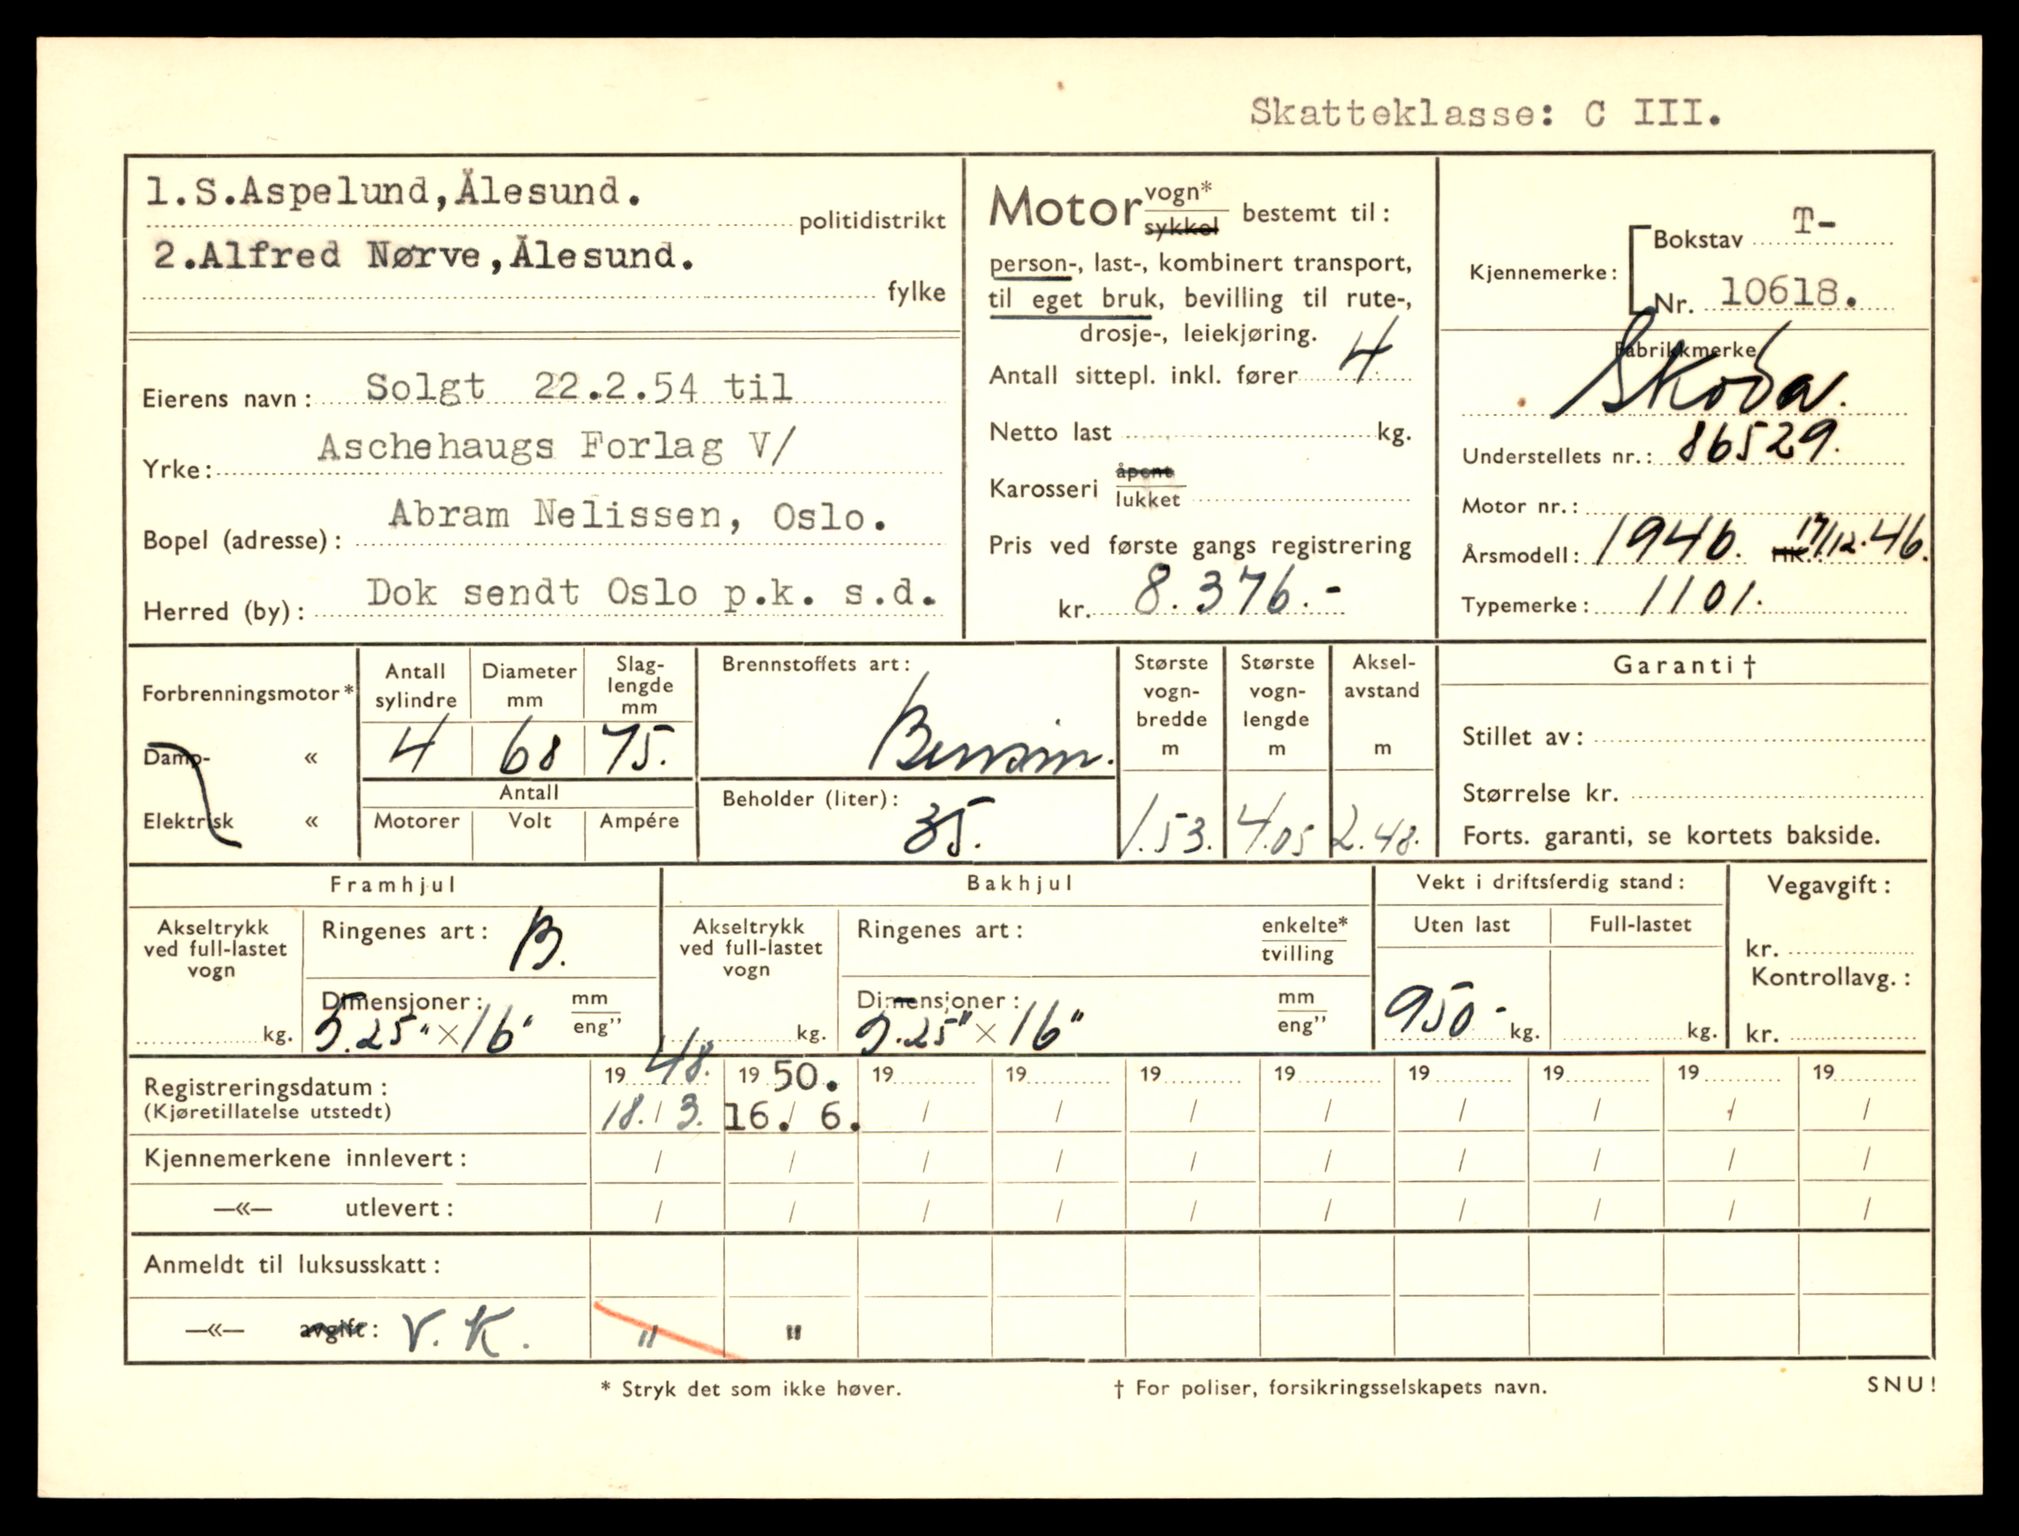 Skatteklasse: C III.
1.S.Aspelund,Ålesund.
politidistrikt
2.Alfred Nørve,Ålesund.
fylke
Eierens navn: Solgt 22.2.54 til
Yrke: Aschehaugs Forlag V/
Bopel (adresse): Abram Nelissen, Oslo.
Herred (by): Dok sendt Oslo p.k. s.d.
Motor vogn* / sykkel bestemt til:
person-, last-, kombinert transport,
til eget bruk, bevilling til rute-,
drosje-, leiekjøring.
Antall sittepl. inkl. fører 4
Netto last kg.
Karosseri åpent / lukket
Pris ved første gangs registrering
kr. 8.376.-
Kjennemerke: Bokstav T-
Nr. 10618.
Fabrikkmerke
Skoda.
Understellets nr.: 86529.
Motor nr.:
Årsmodell: 1946. HK.: 17/12.46.
Typemerke: 1101.
Forbrenningsmotor*
Damp- «
Elektrisk «
Antall sylindre
4
Diameter mm
68
Slag-lengde mm
75.
Antall
Motorer Volt Ampére
Brennstoffets art:
Bensin.
Beholder (liter):
35.
Største vogn-bredde m
1.53.
Største vogn-lengde m
4.05
Aksel-avstand m
2.48.
Garanti †
Stillet av:
Størrelse kr.
Forts. garanti, se kortets bakside.
Framhjul
Akseltrykk ved full-lastet vogn
kg.
Ringenes art: B.
Dimensjoner: mm / eng”
5.25" × 16"
Bakhjul
Akseltrykk ved full-lastet vogn
kg.
Ringenes art: enkelte* / tvilling
Dimensjoner: mm / eng”
5.25" × 16"
Vekt i driftsferdig stand:
Uten last Full-lastet
950.- kg. kg.
Vegavgift:
kr.
Kontrollavg.:
kr.
Registreringsdatum: 19 48. 19 50. 19 19 19 19 19 19 19 19
(Kjøretillatelse utstedt) 18./3. 16./6. / / / / / / / /
Kjennemerkene innlevert: / / / / / / / / / /
—«— utlevert: / / / / / / / / / /
Anmeldt til luksusskatt:
—«— avgift: V. K. " "
* Stryk det som ikke høver.
† For poliser, forsikringsselskapets navn.
SNU!